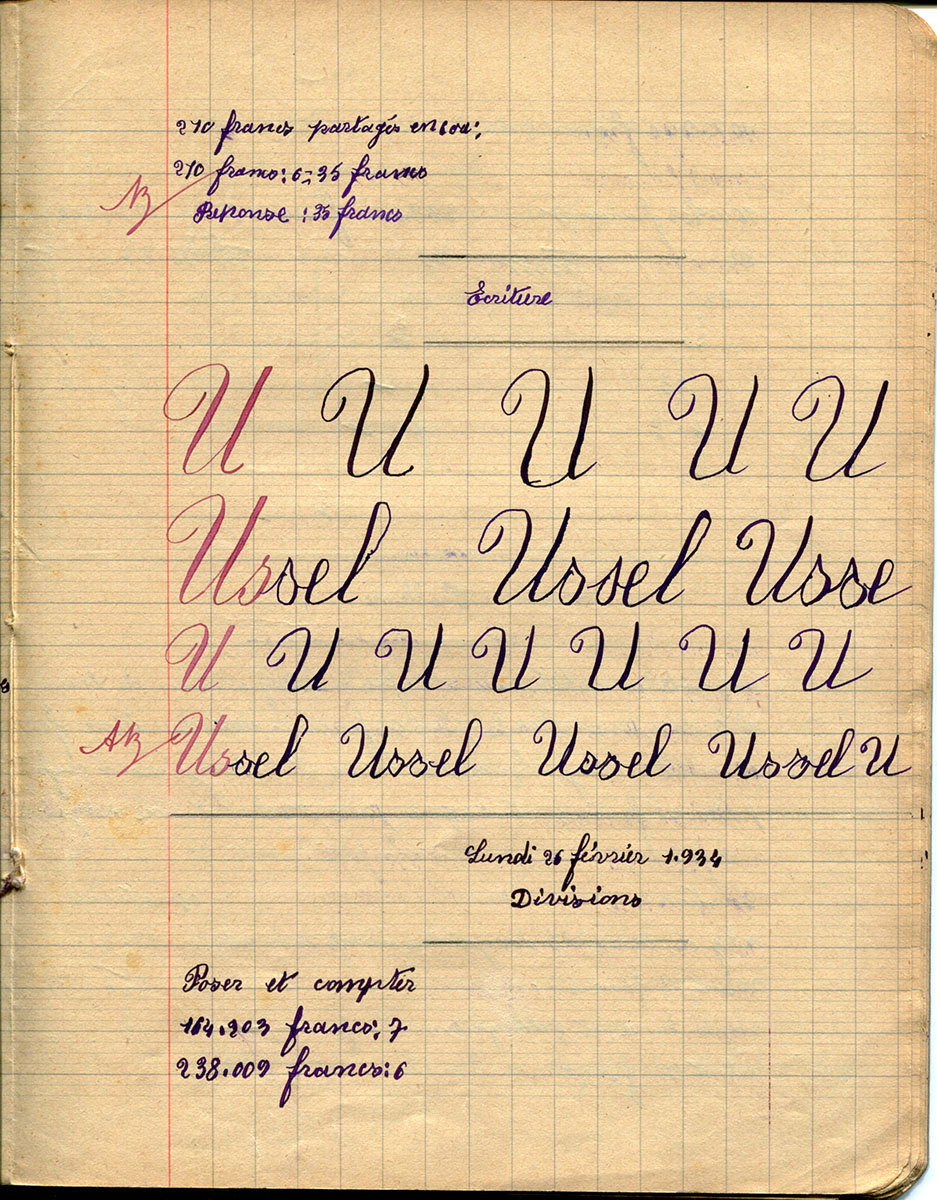 210 francs partagés en 6 ou:
210 francs: 6 = 35 francs
Reponse : 35 francs
Ecriture
U U U U U
Ussel Ussel Usse
U U U U U U U
Ussel Ussel Ussel Ussel U
Lundi 26 février 1.934
Divisions
Poser et compter
164.203 francs: 7
238.009 francs: 6